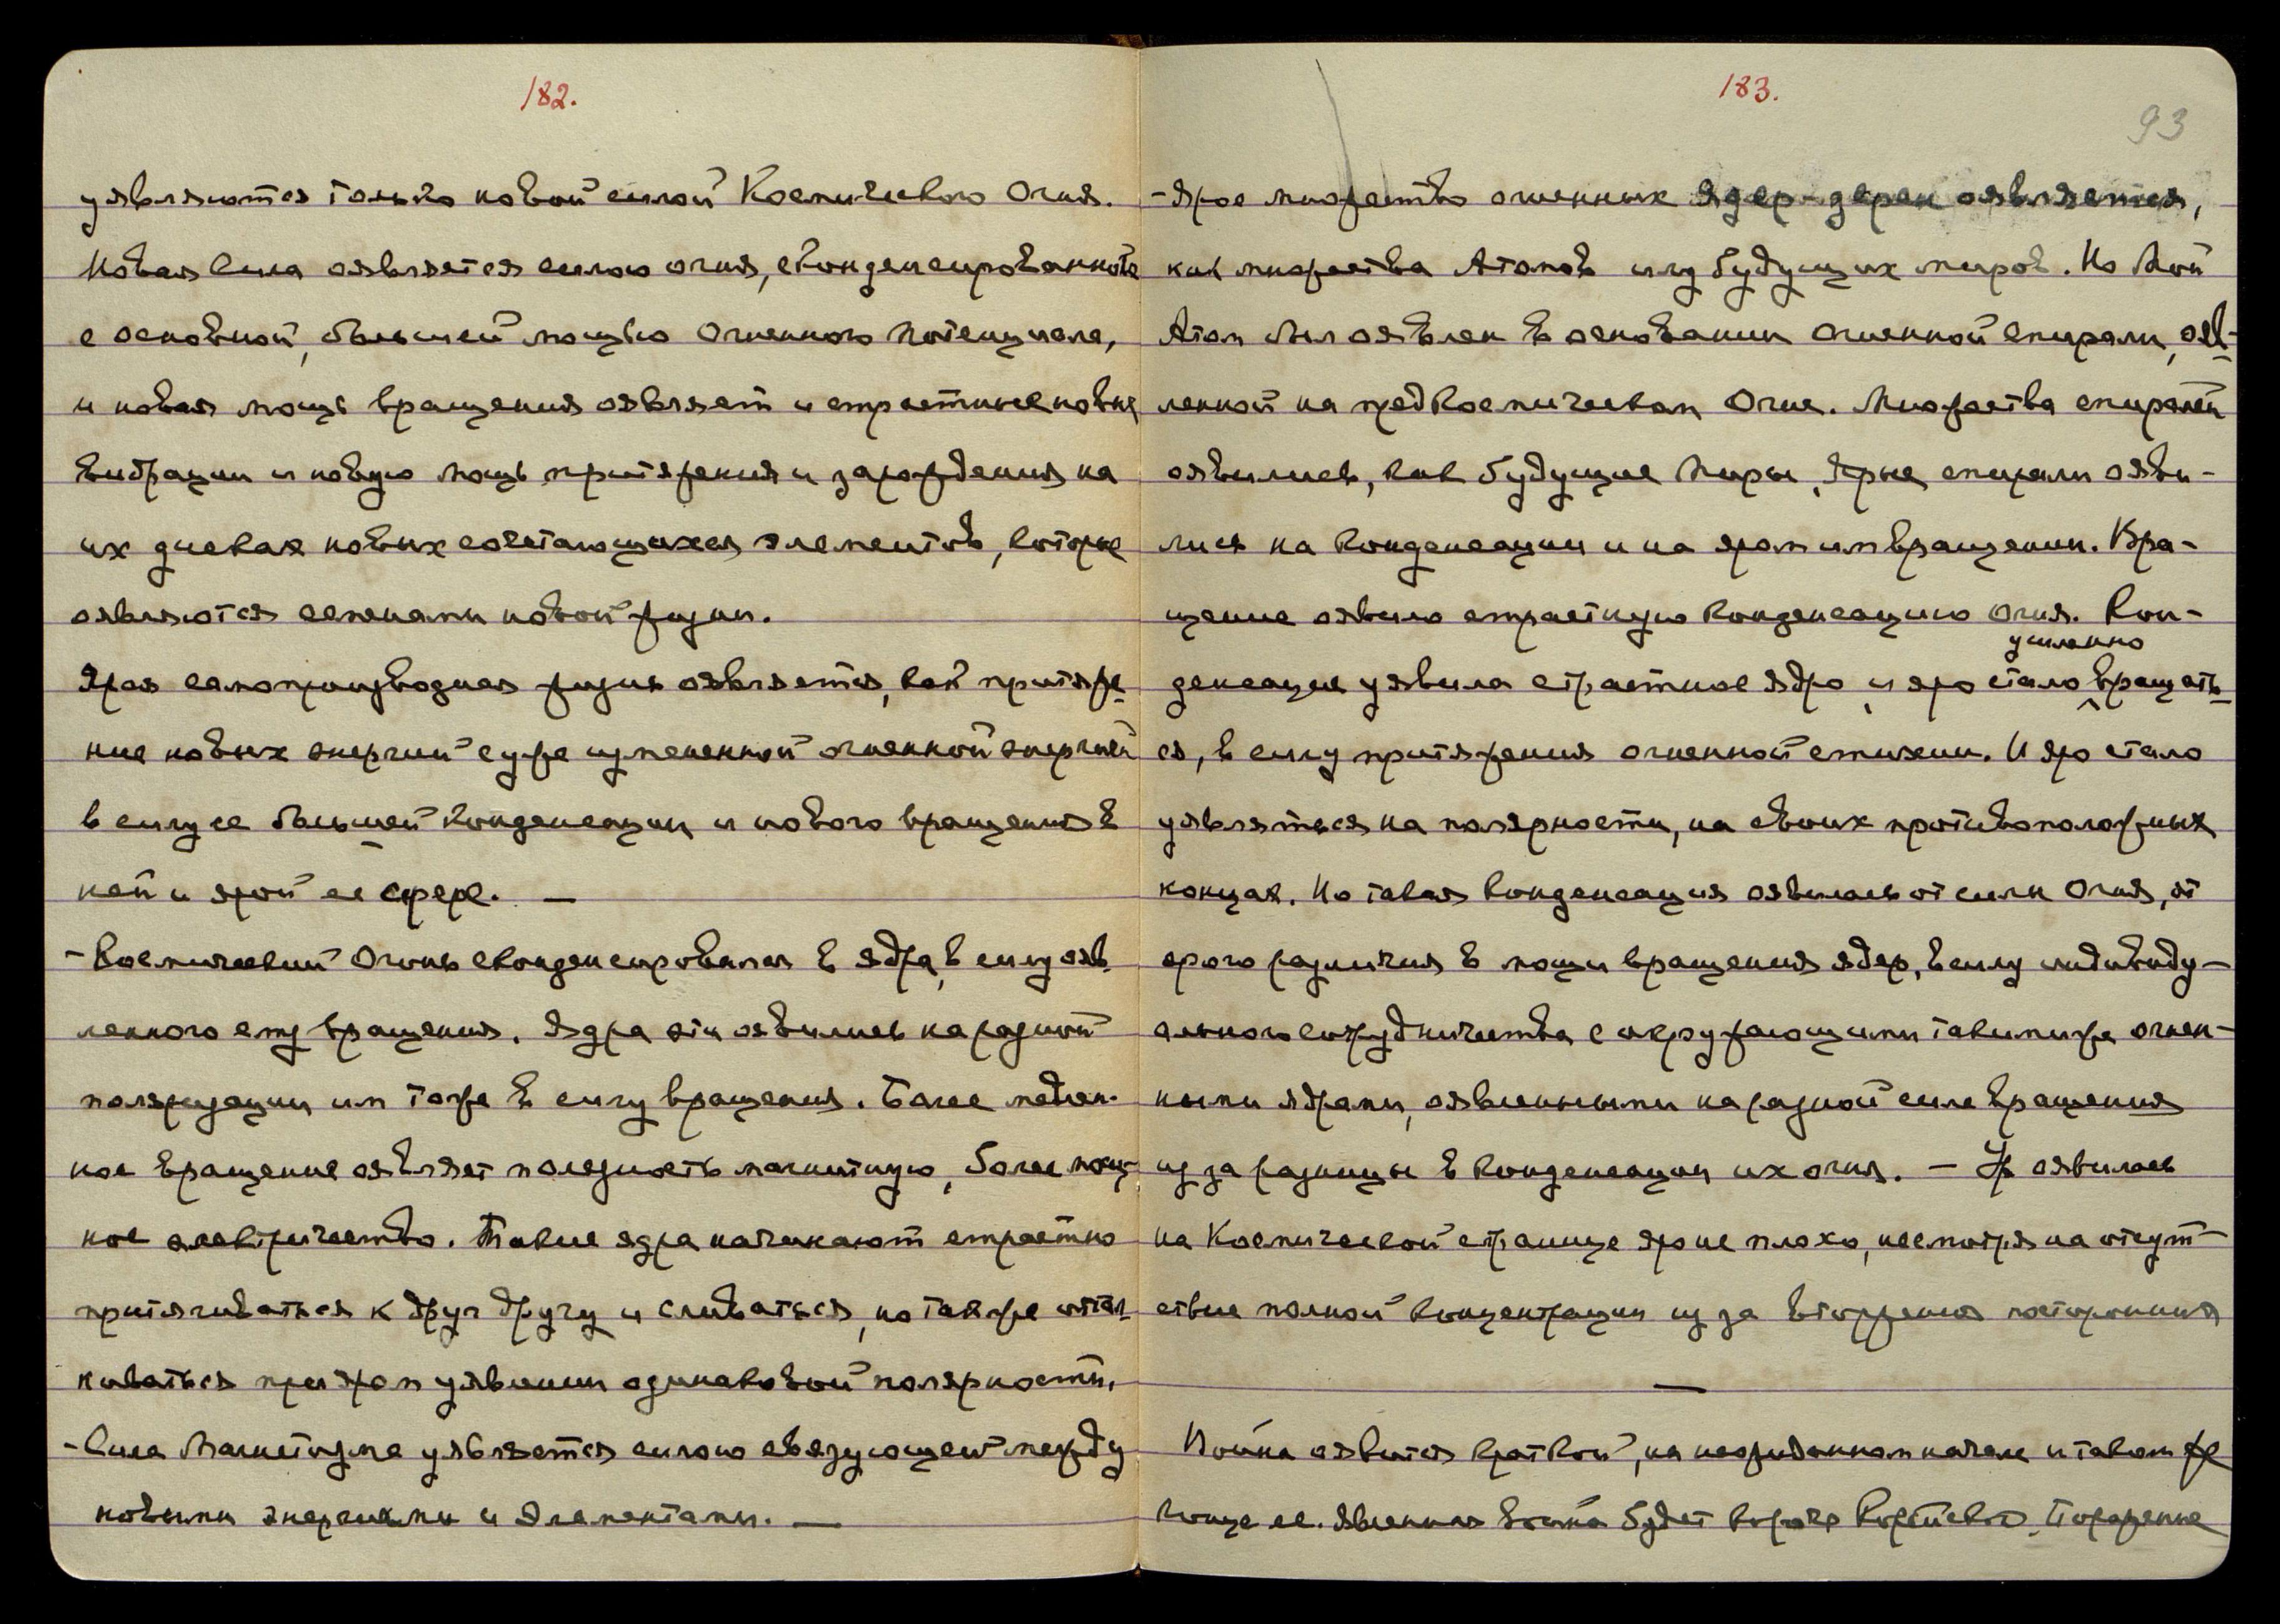 182.
уявляются только новой силой Космического Огня.
Новая Сила оявляется силою огня, сконденсированного
с основной, большей мощью Огненного Потенциала,
и новая мощь вращения оявляет и страстные новые
вибрации и новую мощь притяжения и зарождения на
их дисках новых сочетающихся элементов, которые
оявляются семенами новой жизни.
Ярая самопроизводная жизнь оявляется, как притяже-
ние новых энергий с уже измененной огненной энергией
в силу ее большей конденсации и нового вращения в
ней и ярой ее сфере. —
- Космический Огонь сконденсировался в ядра, в силу явл-
ленного ему вращения. Ядра эти оявились на разной
поляризации им тоже в силу вращения. Более медлен-
ное вращение оявляет полярность магнитную, более мощ-
ное электричество. Такие ядра начинают страстно
притягиваться к друг другу и сливаться, но также оттал-
киваться при яром уявлении одинаковой полярности.
- Сила Магнетизма уявляется силою связующей между
новыми энергиями и Элементами. —
183.
93
- Ярое множество огненных Ядер-зерен оявляется,
как множества Атомов или будущих миров. Но Мой
Атом был оявлен в основании Огненной спирали, явл-
ленной на предКосмическом Огне. Множества спиралей
оявились, как будущие Миры. Ярые спирали ояви-
лись на конденсации и на яром им вращении. Вра-
щение оявило страстную конденсацию Огня. Кон-
денсация уявила страстное Ядро и яро стало усиленно вращать-
ся, в силу притяжения огненной стихии. И яро стало
уявляться на полярности, на своих противоположных
концах. Но такая конденсация оявилась от силы Огня, от
ярого различия в мощи вращения ядер, в силу индивиду-
ального сотрудничества с окружающими такими же огнен-
ными ядрами, оявленными на разной силе вращения
из за разницы в конденсации их огня. — Ур. оявилась
на Космической странице яро не плохо, несмотря на отсут-
ствие полной концентрации из за вторжения посторонния
—
Война оявится краткой, на неожиданном начале и таком же
конце ее. Явленная Война будет короче Корейской. Поражение